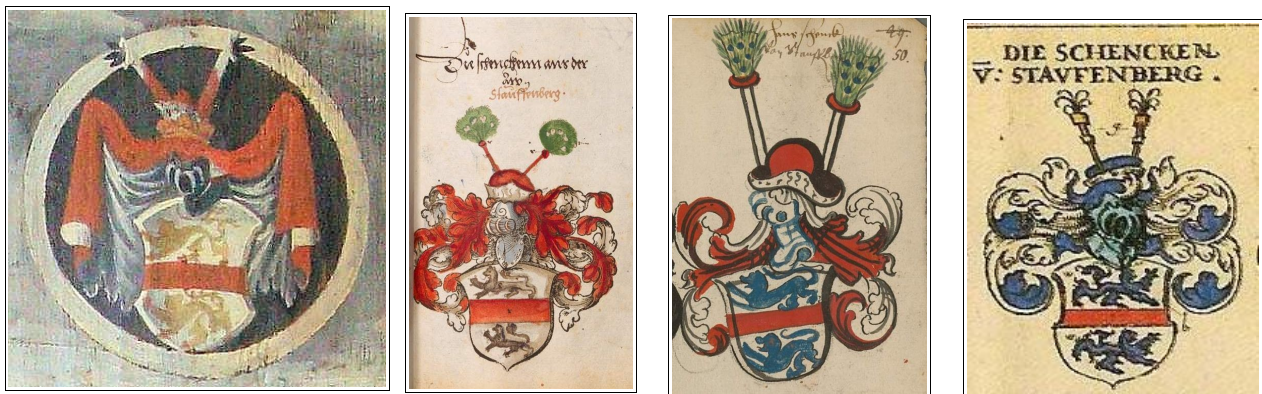 Die schenckenn auss der
aw
Stauffenberg.
Hans schenck
von Stauff
49.
50.
DIE SCHENCKEN.
V̄: STAVFENBERG.